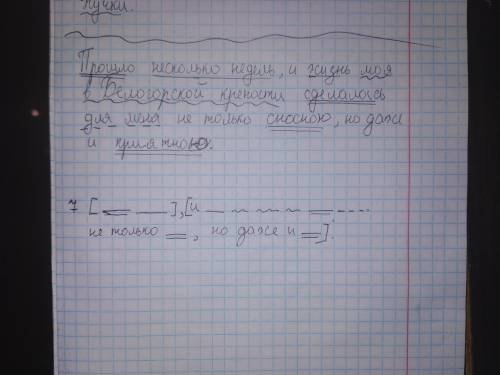 пучки.
Прошло несколько недель, и жизнь моя
в Белогорской крепости сделалась
для меня не только сносною, но даже
и приятною.
7 [ ], [и
не только , но даже и ].